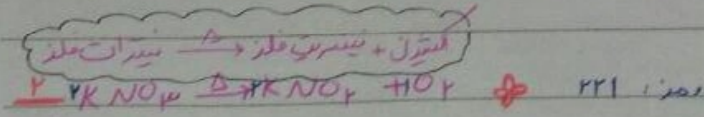 نیترات فلز —Δ→ نیتریت فلز + اکسیژن
۲ ۲K NO۳ —Δ→ ۲K NO۲ + ۱O۲ رمز: ۲۲۱